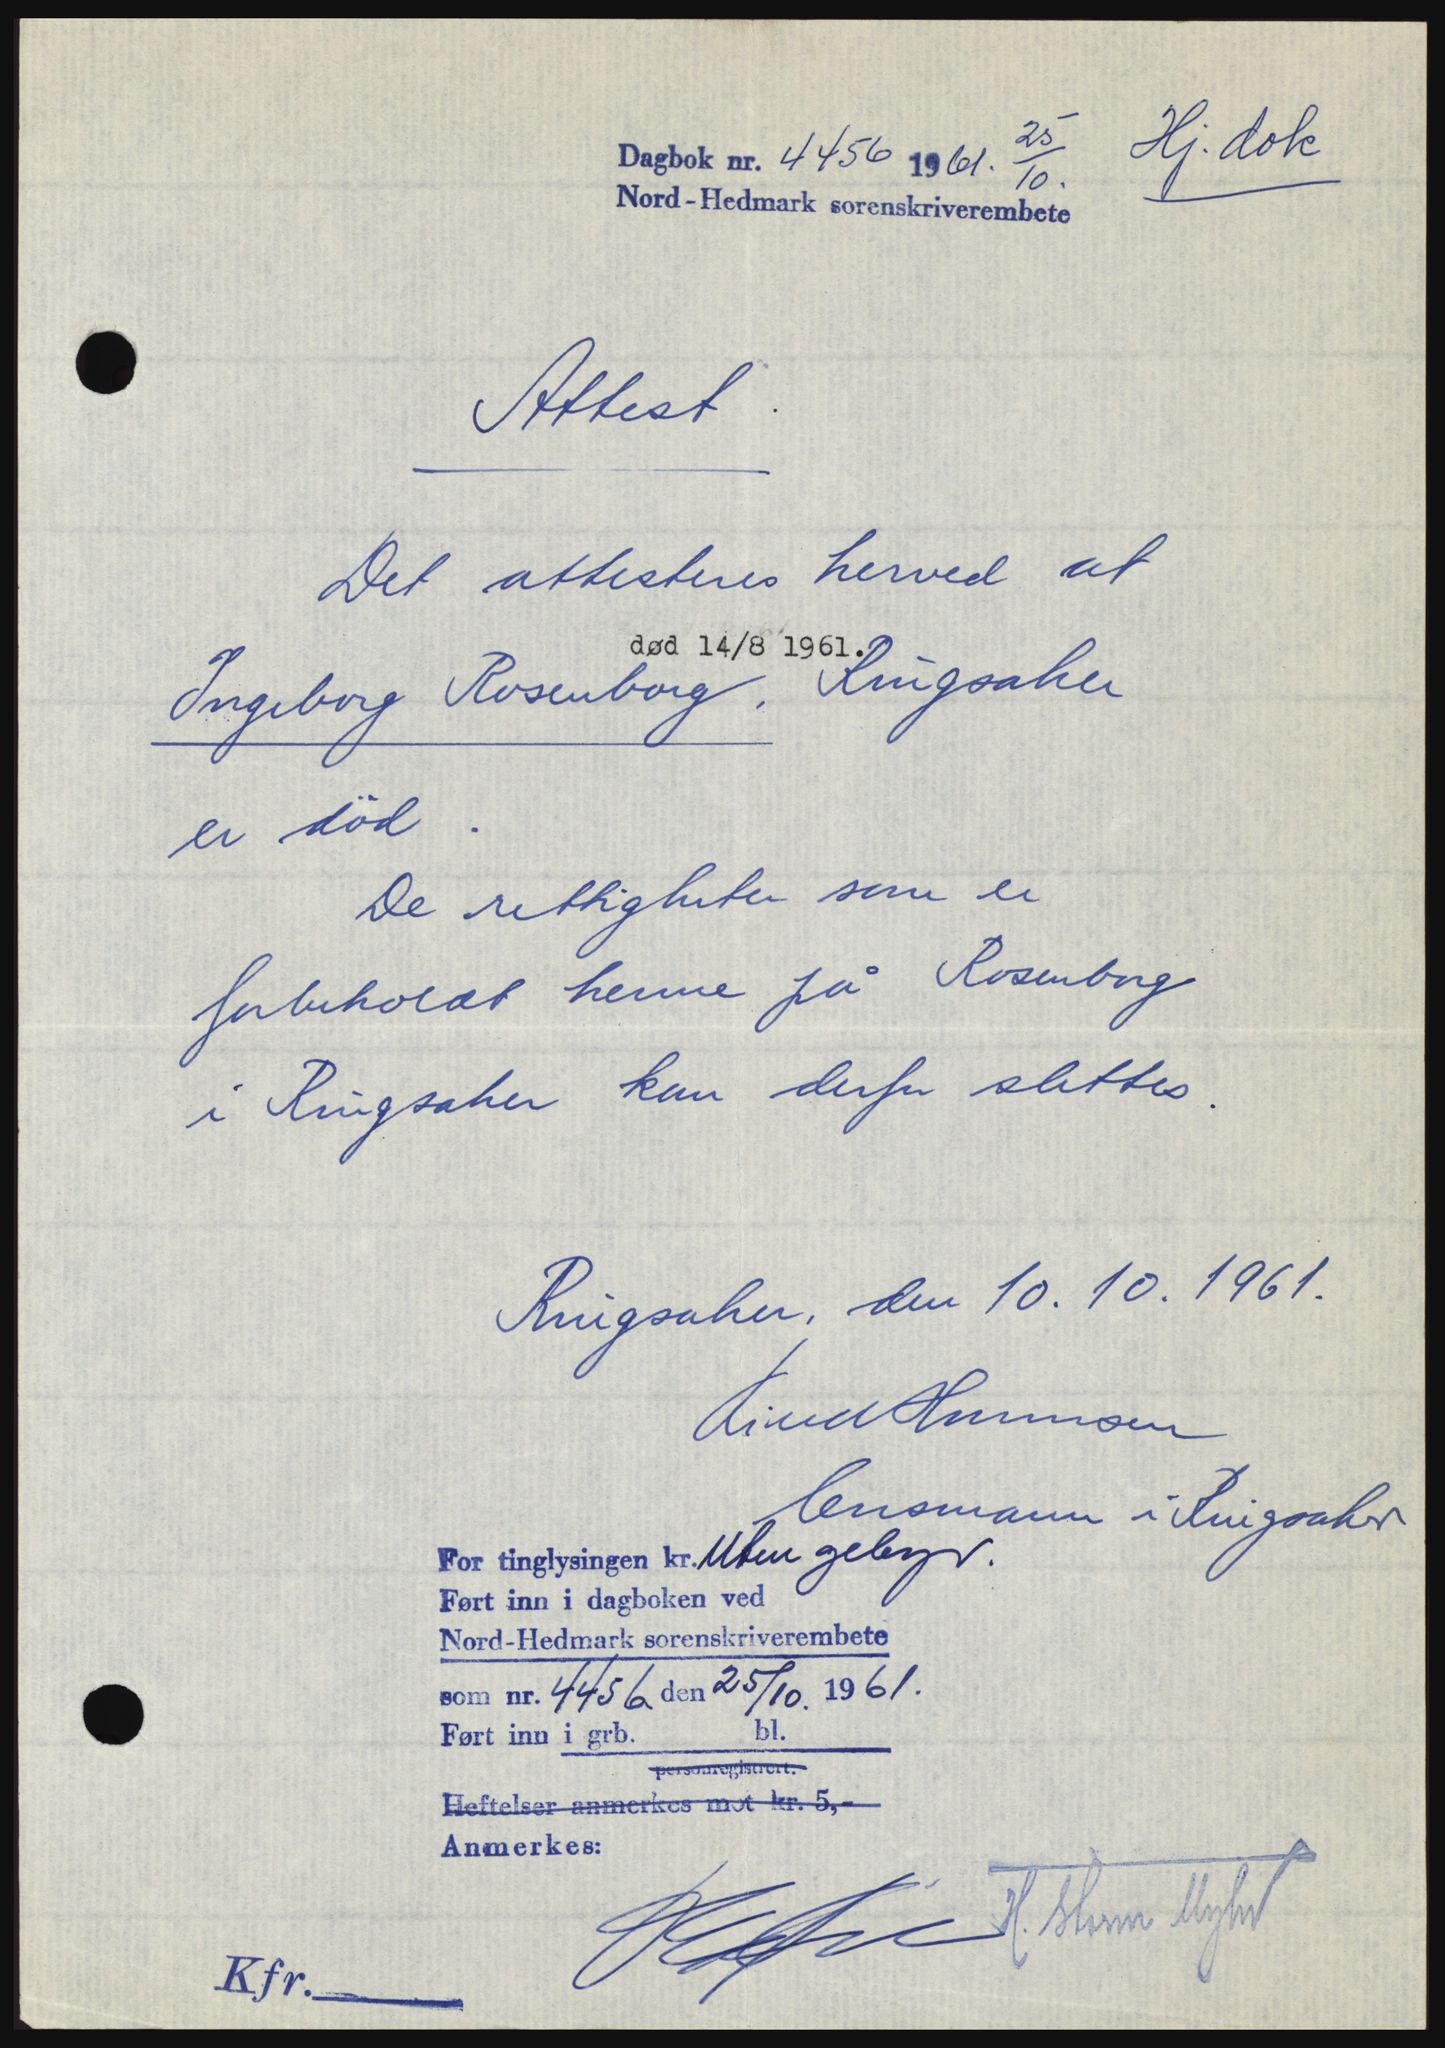 Dagbok nr. 4456 1961. 25/10. Hj. dok
Nord-Hedmark sorenskriverembete
Attest.
Det attesteres herved at
død 14/8 1961.
Ingeborg Rosenborg, Ringsaker
er död.
De rettigheter som er
forbeholdt henne på Rosenborg
i Ringsaker kan derfor slettes.
Ringsaker, den 10.10.1961.
lensmann i Ringsaker
For tinglysingen kr. Uten gebyr.
Ført inn i dagboken ved
Nord-Hedmark sorenskriverembete
som nr. 4456 den 25/10. 1961.
Ført inn i grb. bl.
personregistrert.
Heftelser anmerkes mot kr. 5,-
Anmerkes:
H.
Kfr.